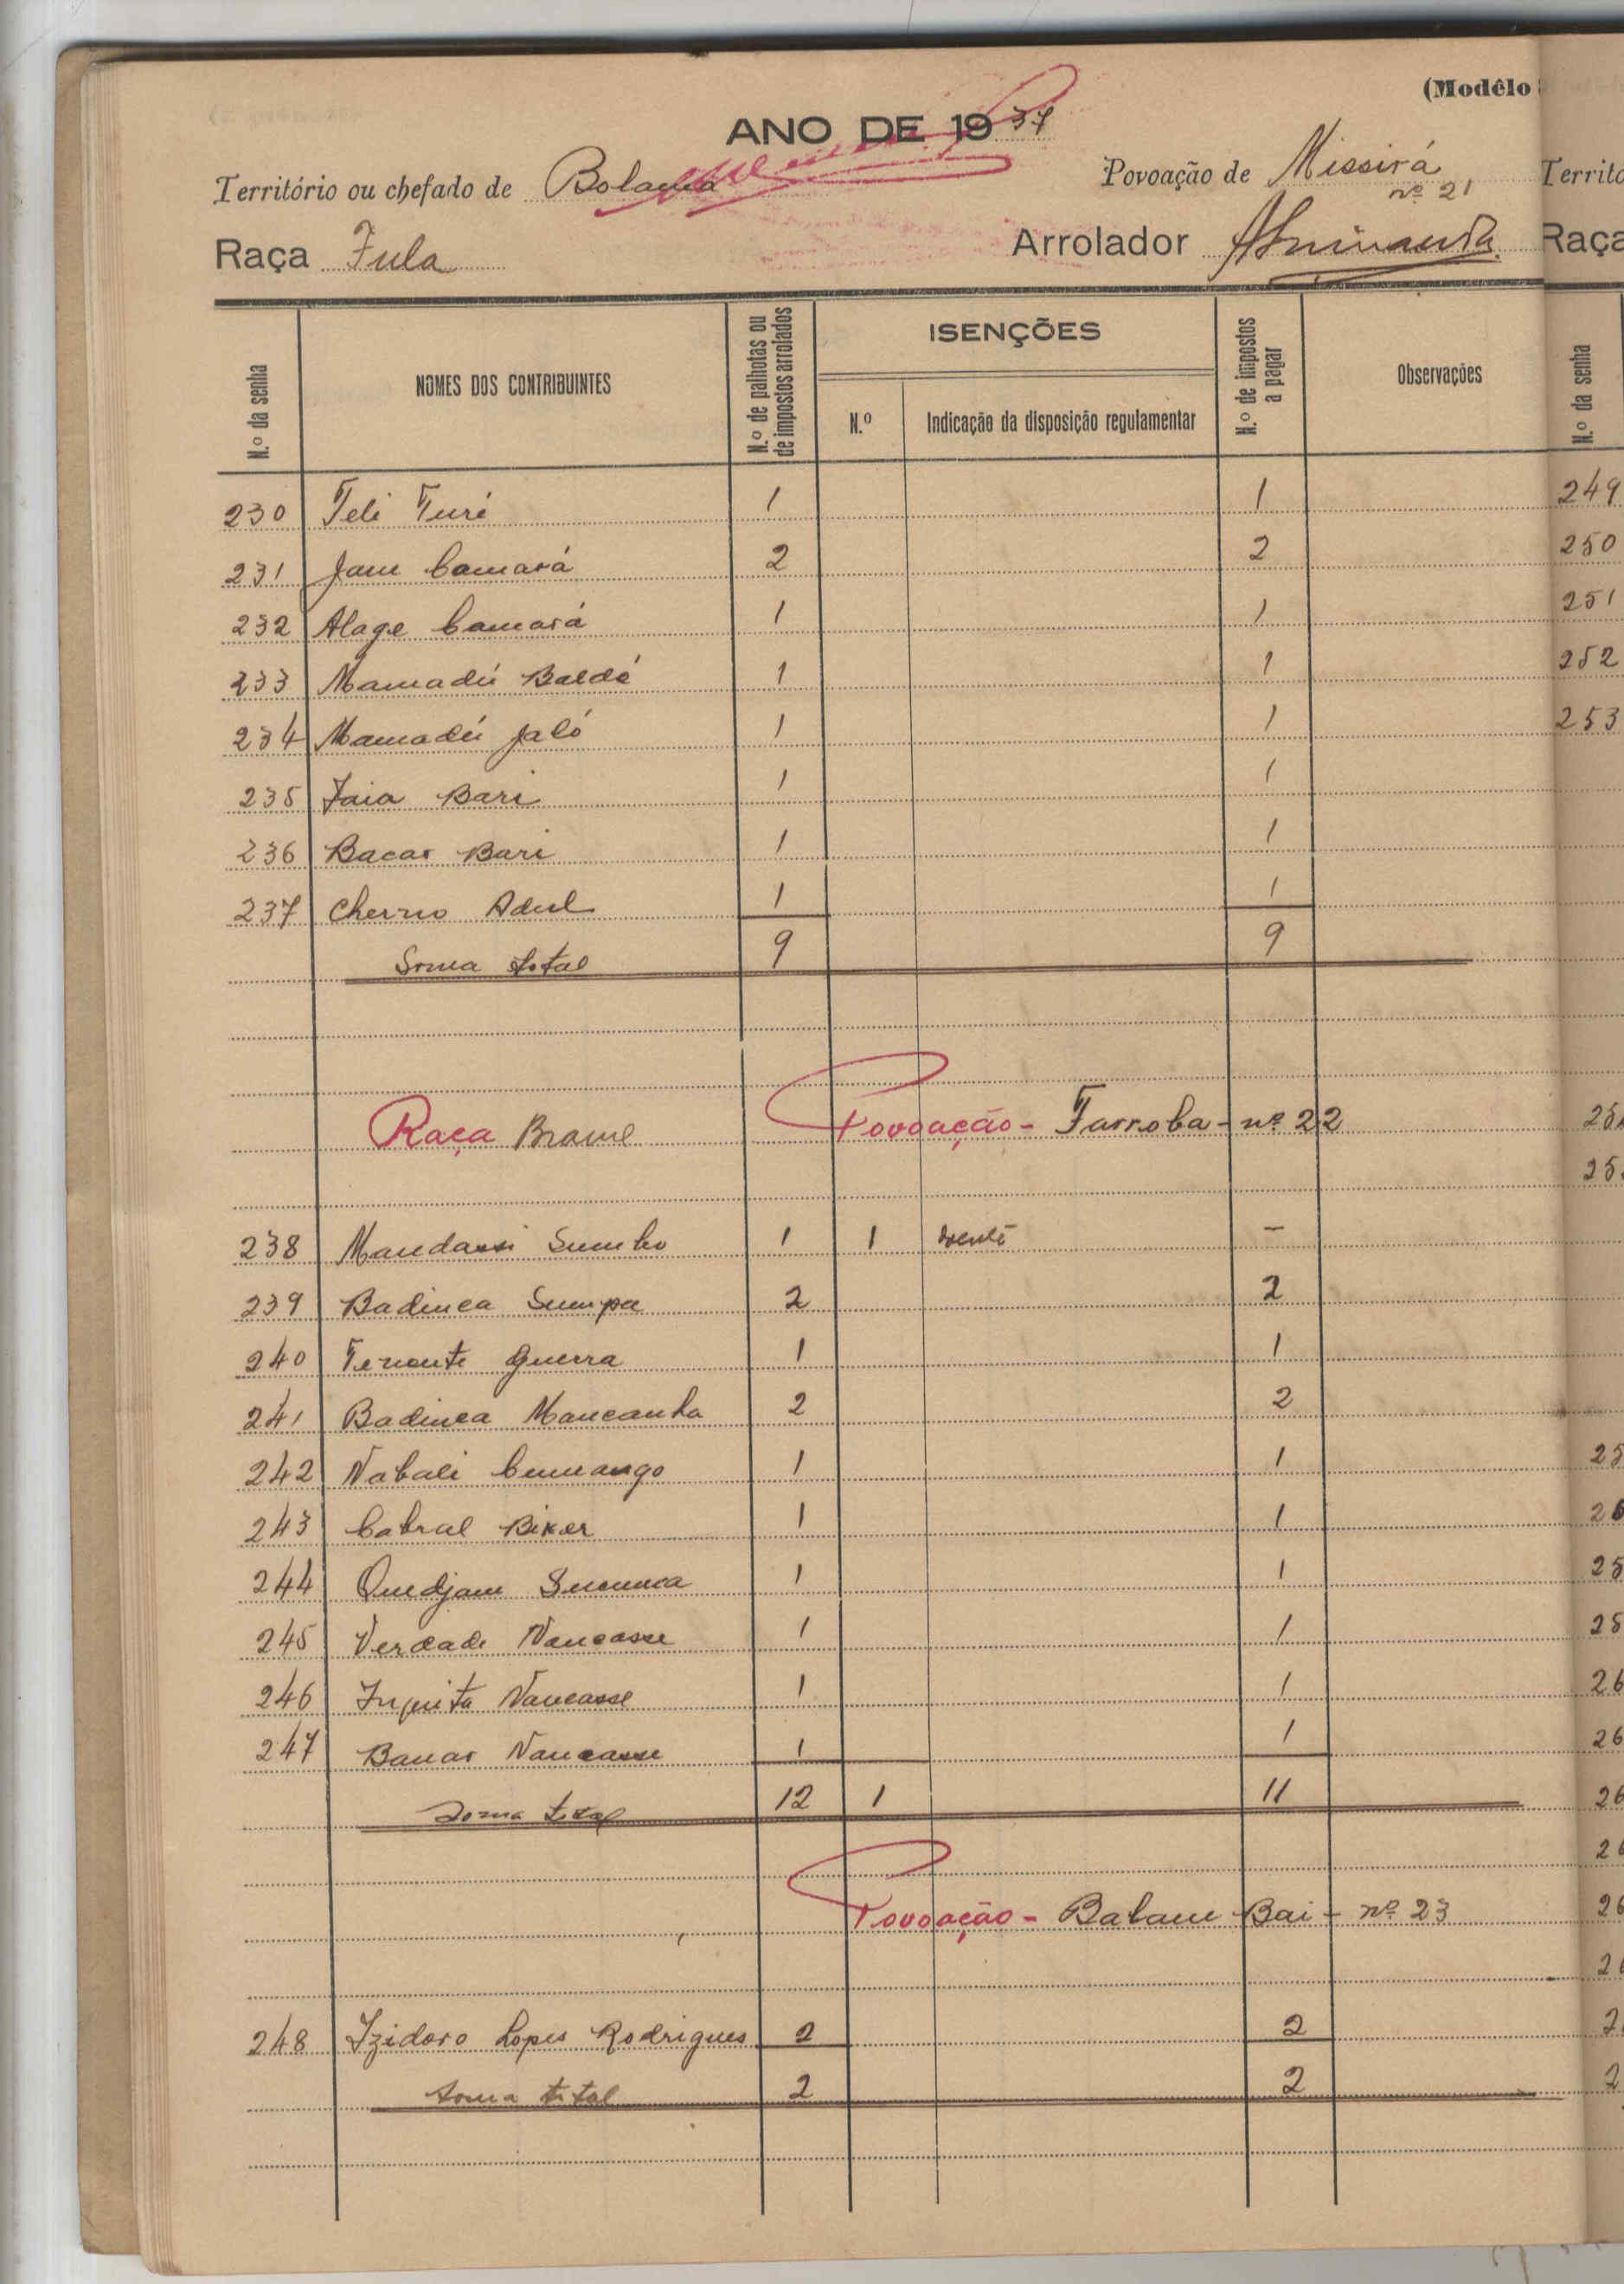 (Modêlo
ANO DE 1937
Território ou chefado de Bolama Povoação de Missirá
nº 21
Raça Fula Arrolador
N.º da senha NOMES DOS CONTRIBUINTES N.º de palhotas ou de impostos arrolados ISENÇÕES N.º Indicação da disposição regulamentar N.º de impostos a pagar Observações
230 Teli Turé 1 1
231 Jam Camará 2 2
232 Alage Camará 1 1
233 Mamadú Baldé 1 1
234 Mamadú Jaló 1 1
235 Jaia Bari 1 1
236 Bacar Bari 1 1
237 Cherno Adul 1 1
Soma total 9 9
Raça Brame Povoação - Farroba - nº 22
238 Mandassi Sumbo 1 1 doente -
239 Badinca Sumpa 2 2
240 Tenente Guerra 1 1
241 Badinca Mancanha 2 2
242 Nabali Cumango 1 1
243 Cabral Biker 1 1
244 Quedjam 1 1
245 Verdade Nancasse 1 1
246 Nancasse 1 1
247 Banar Nancasse 1 1
Soma total 12 1 11
Povoação - Babam Bai - nº 23
248 Izidoro Lopes Rodrigues 2 2
Soma total 2 2
Territo
Raça
N.º da senha
249
250
251
252
253